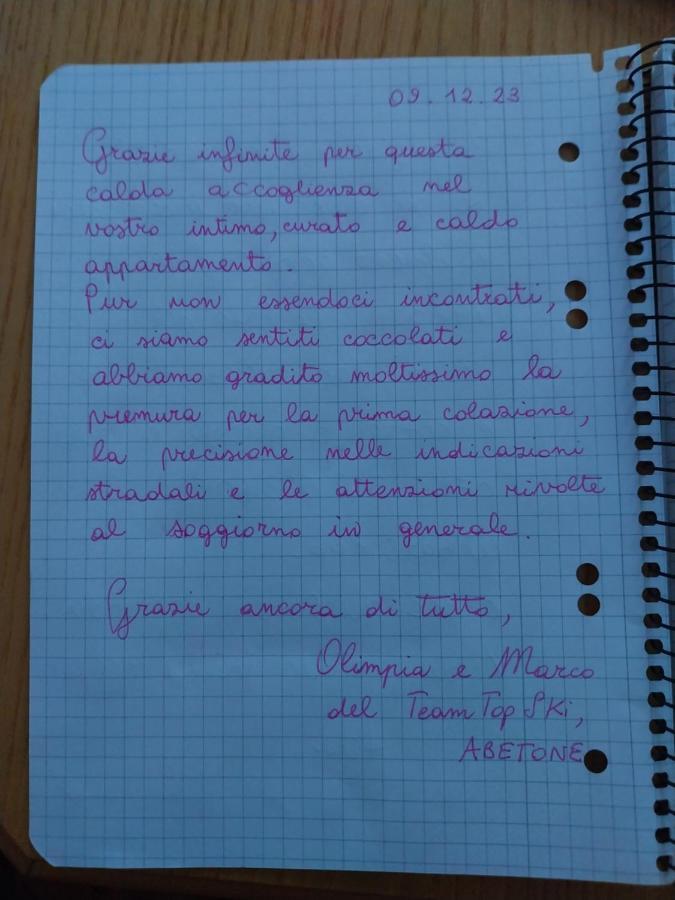 09.12.23
Grazie infinite per questa
calda accoglienza nel
vostro intimo, curato e caldo
appartamento.
Pur non essendoci incontrati,
ci siamo sentiti coccolati e
abbiamo gradito moltissimo la
premura per la prima colazione,
la precisione nelle indicazioni
stradali e le attenzioni rivolte
al soggiorno in generale.
Grazie ancora di tutto,
Olimpia e Marco
del Team Top Ski,
ABETONE